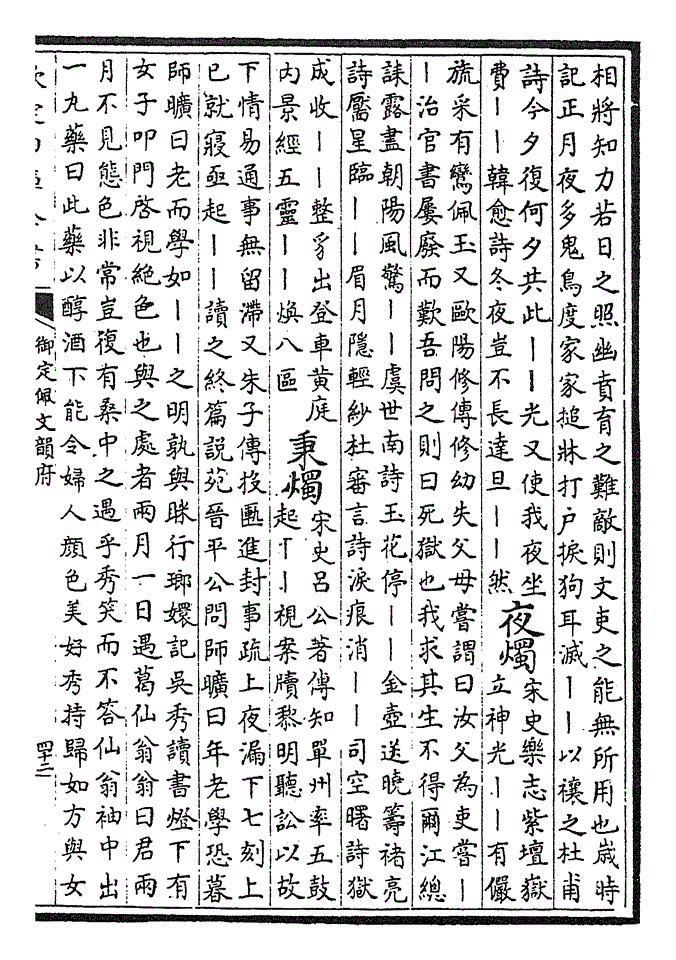 相將知力若日之照幽賁育之難敵則文吏之能無所用也歲時
記正月夜多鬼鳥度家家搥牀打户捩狗耳滅丨丨以禳之杜甫
詩今夕復何夕共此丨丨光又使我夜坐
費丨丨韓愈詩冬夜豈不長達旦丨丨然
夜燭
宋史樂志紫壇嶽
立神光丨丨有儼
旒采有鸞佩玉又歐陽修傳修幼失父母嘗謂曰汝父為吏嘗丨
丨治官書屢廢而歎吾問之則曰死獄也我求其生不得爾江總
誄露盡朝陽風驚丨丨虞世南詩玉花停丨丨金壺送曉籌褚亮
詩靨星臨丨丨眉月隱輕紗杜審言詩淚痕消丨丨司空曙詩獄
成收丨丨整豸出登車黄庭
内景經五靈丨丨煥八區
秉燭
宋史呂公著傳知單州率五鼓
起丨丨視案牘黎明聽訟以故
下情易通事無留滯又朱子傳投匭進封事疏上夜漏下七刻上
已就寢亟起丨丨讀之終篇説苑晉平公問師曠曰年老學恐暮
師曠曰老而學如丨丨之明孰與昧行瑯嬛記吳秀讀書燈下有
女子叩門啓視絕色也與之處者兩月一日遇葛仙翁翁曰君兩
月不見態色非常豈復有桑中之遇乎秀笑而不答仙翁袖中出
一丸藥曰此藥以醇酒下能令婦人顔色美好秀持歸如方與女
欽定四庫全書
御定佩文韻府
四十三